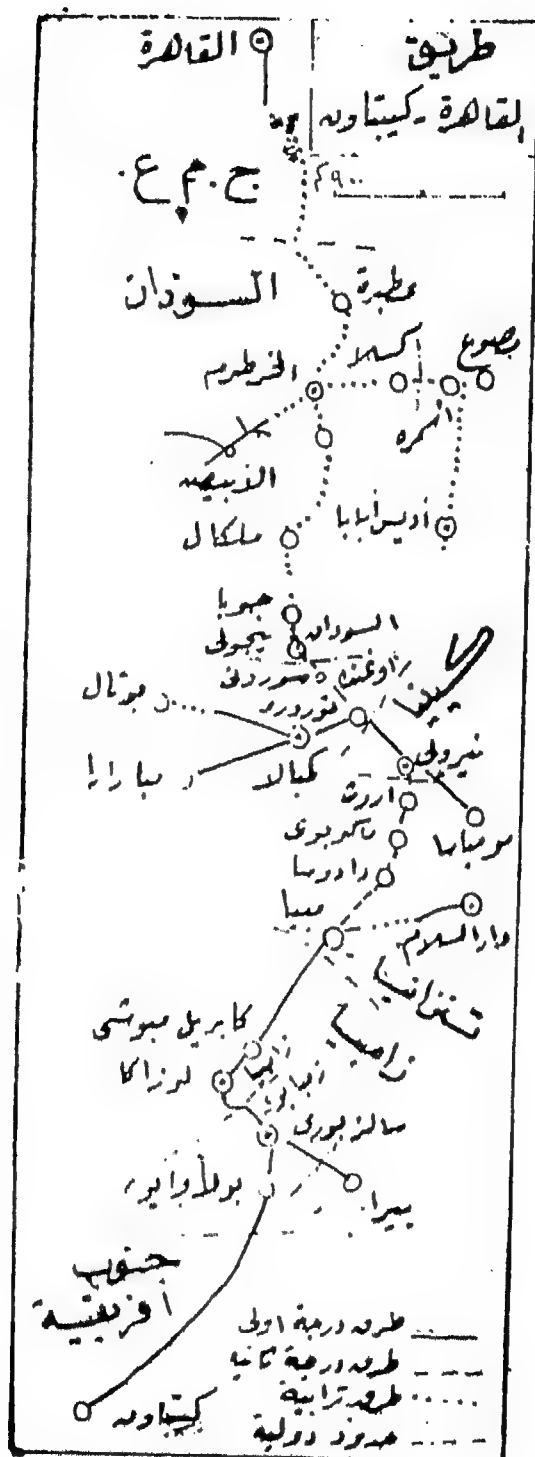 طريق
القاهرة - كيبتاون
القاهرة
٩٠٠ كم
ج. م. ع.
السودان
عطبرة
كسلا
مصوع
الخرطوم
اسمره
الأبيض
أديس أبابا
ملكال
جوبا
السودان
نيجولى
أوغندة
كينيا
تورورو
بوتال
كمبالا
نيروبى
مبارارا
اروشا
مومباسا
دادوما
مبيا
دار السلام
تنزانيا
زامبيا
كابريل مبوشى
لوزاكا
سالزبورى
بولاوايو
بيرا
جنوب
أفريقية
كيبتاون
طرق درجة اولى
طرق درجة ثانية
طرق ترابية
حدود دولية